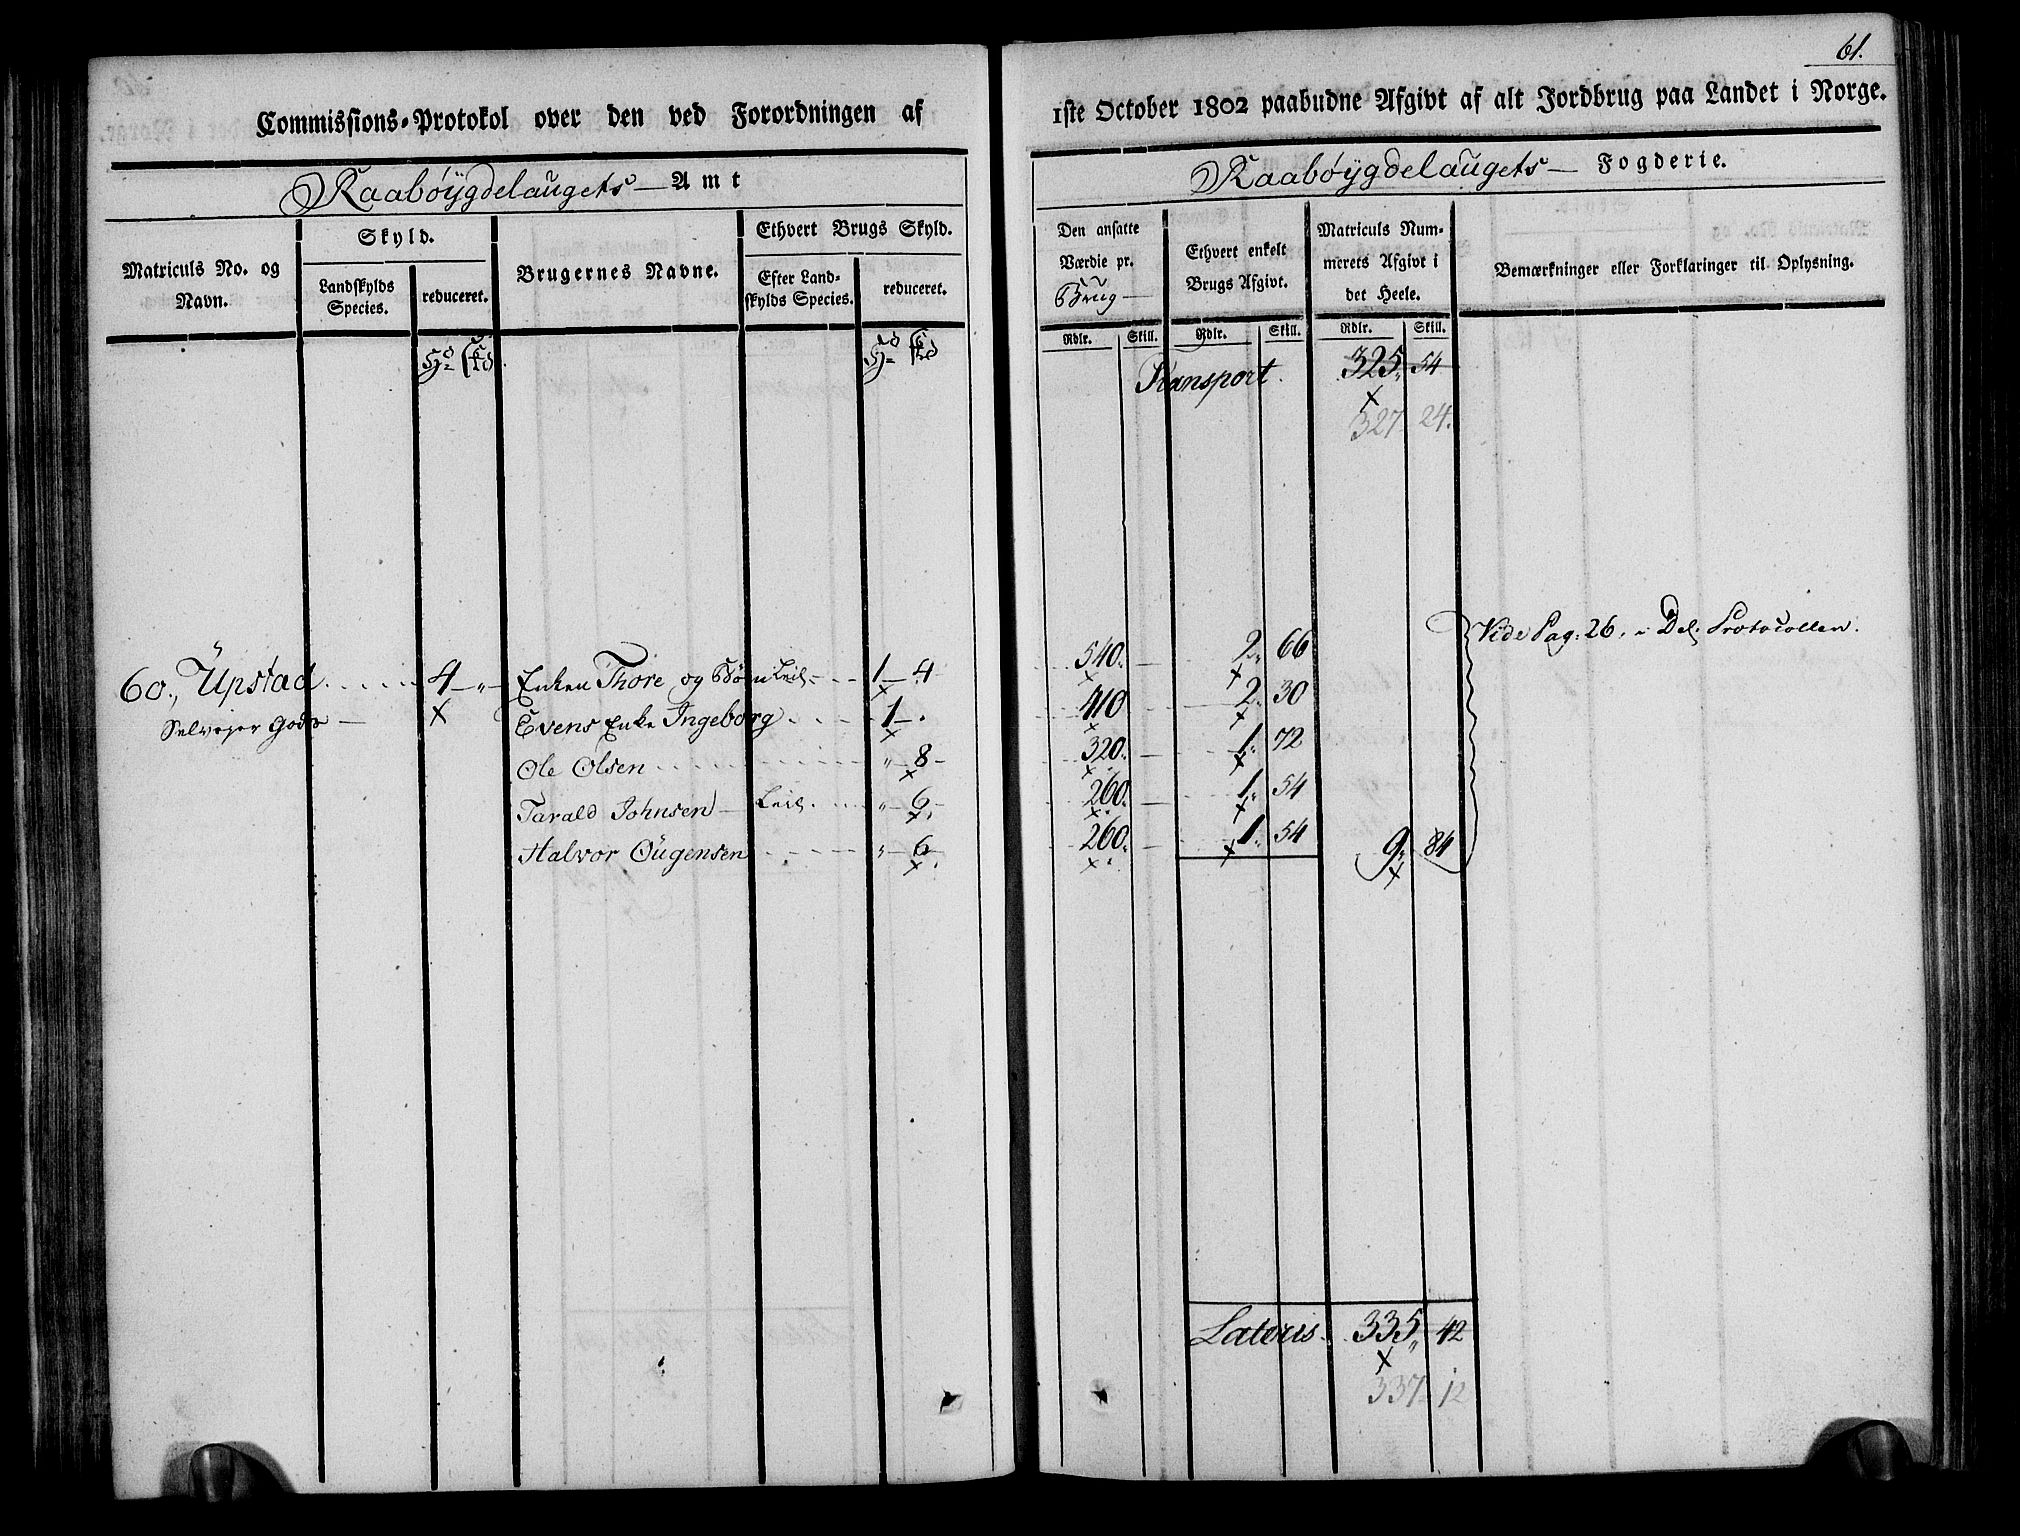 61.
Commissions-Protokol over den ved Forordningen af 1ste October 1802 paabudne Afgivt af alt Jordbrug paa Landet i Norge.
Raabøygdelaugets — Amt
Raabøygdelaugets — Fogderie.
Matriculs No. og Navn.
Skyld.
Landskylds Species.
reduceret.
Brugernes Navne.
Ethvert Brugs Skyld.
Efter Landskylds Species.
reduceret.
Den ansatte Værdie pr. Brug —
Ethvert enkelt Brugs Afgivt.
Matriculs Nummerets Afgivt i det Heele.
Bemærkninger eller Forklaringer til Oplysning.
Rdlr. Skill. Rdlr. Skill. Rdlr. Skill.
Transport. 325 54
327 24.
Vide Pag: 26, i Del: Protocollen.
60., Upstad 4 — „ — Enken Thore og Børn Leil. 1 — 4 540. 2. 66
Selvejer Gods — Evens Enke Ingeborg 1 — . 410 2. 30
Ole Olsen „ 8 320. 1. 72
Tarald Johnsen — Leil. „ 6. 260. 1. 54
Halvor Øugensen „ 6. 260. 1. 54 9. 84
Lateris. 335 42
337 12